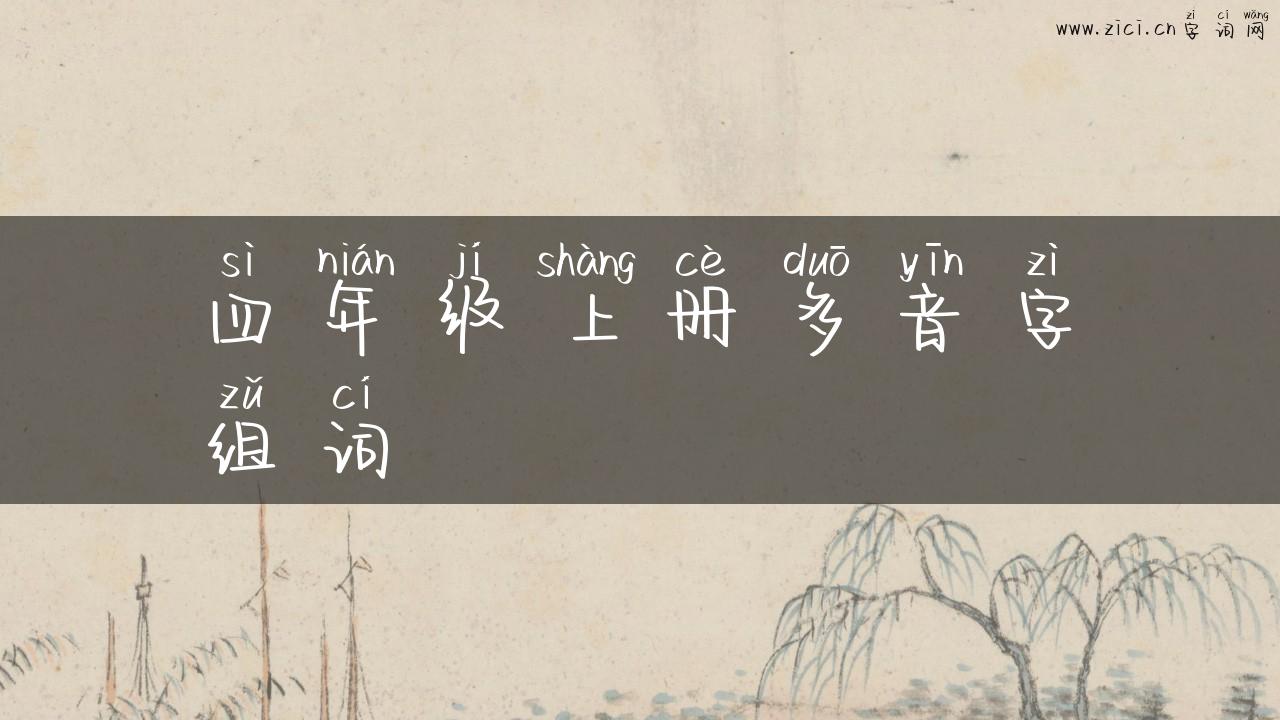 zì cí wǎng
www.zici.cn 字 词 网
sì nián jí shàng cè duō yīn zì
四 年 级 上 册 多 音 字
zǔ cí
组 词